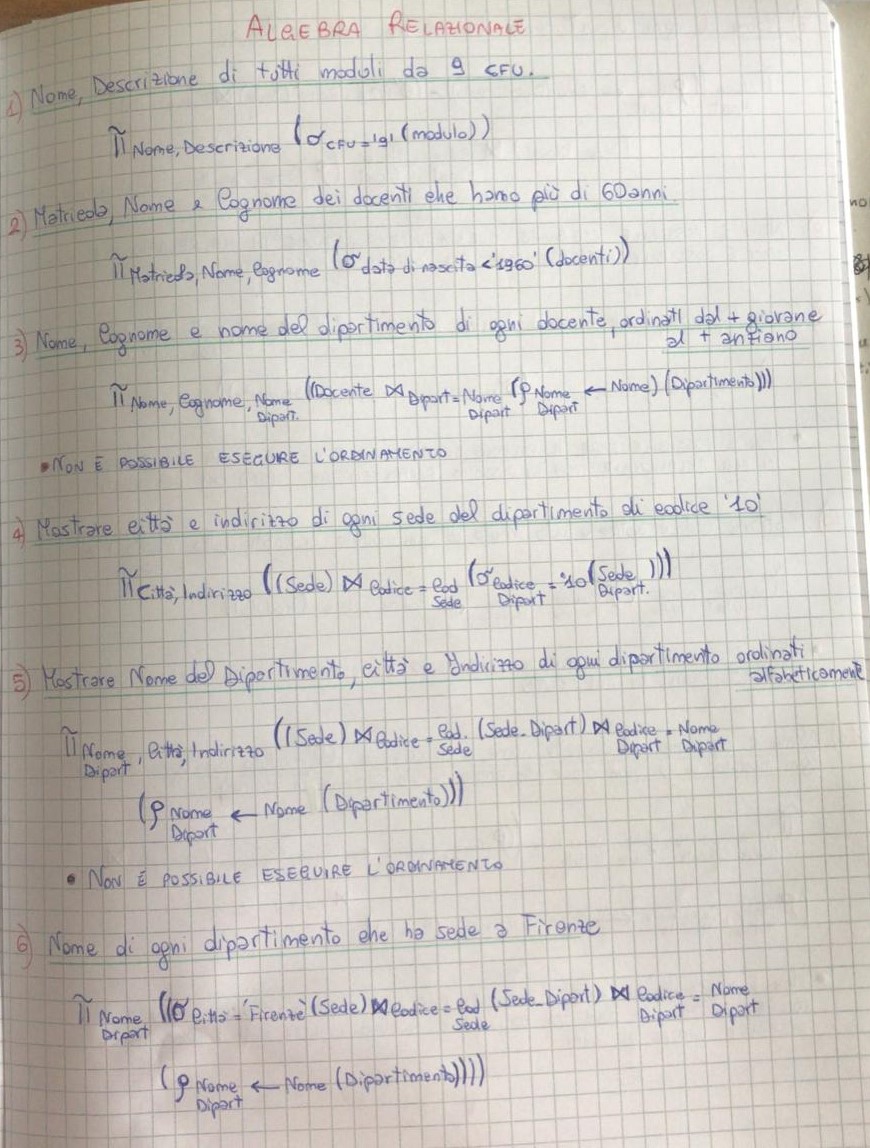 ALGEBRA RELAZIONALE
1) Nome, Descrizione di tutti moduli da 9 CFU.
π Nome, Descrizione (σ CFU='9' (modulo))
2) Matricola, Nome e Cognome dei docenti che hanno più di 60 anni
π Matricola, Nome, Cognome (σ data di nascita <'1960' (docenti))
3) Nome, Cognome e nome del dipartimento di ogni docente, ordinati dal + giovane
al + anziano
π Nome, Cognome, Nome Dipart. ((Docente ⋈ Dipart = Nome Dipart (ρ Nome Dipart ← Nome) (Dipartimento)))
• NON È POSSIBILE ESEGUIRE L'ORDINAMENTO
4) Mostrare città e indirizzo di ogni sede del dipartimento di codice '10'
π Città, Indirizzo ((Sede) ⋈ Codice = Cod Sede (σ Codice Dipart = '10 (Sede Dipart.)))
5) Mostrare Nome del Dipartimento, città e Indirizzo di ogni dipartimento ordinati
alfabeticamente
π Nome Dipart, Città, Indirizzo ((Sede) ⋈ Codice = Cod. Sede (Sede_Dipart) ⋈ Codice Dipart = Nome Dipart
(ρ Nome Dipart ← Nome (Dipartimento)))
• NON È POSSIBILE ESEGUIRE L'ORDINAMENTO
6) Nome di ogni dipartimento che ha sede a Firenze
π Nome Dipart ((σ Città = 'Firenze' (Sede) ⋈ Codice = Cod Sede (Sede_Dipart) ⋈ Codice Dipart = Nome Dipart
(ρ Nome Dipart ← Nome (Dipartimento))))